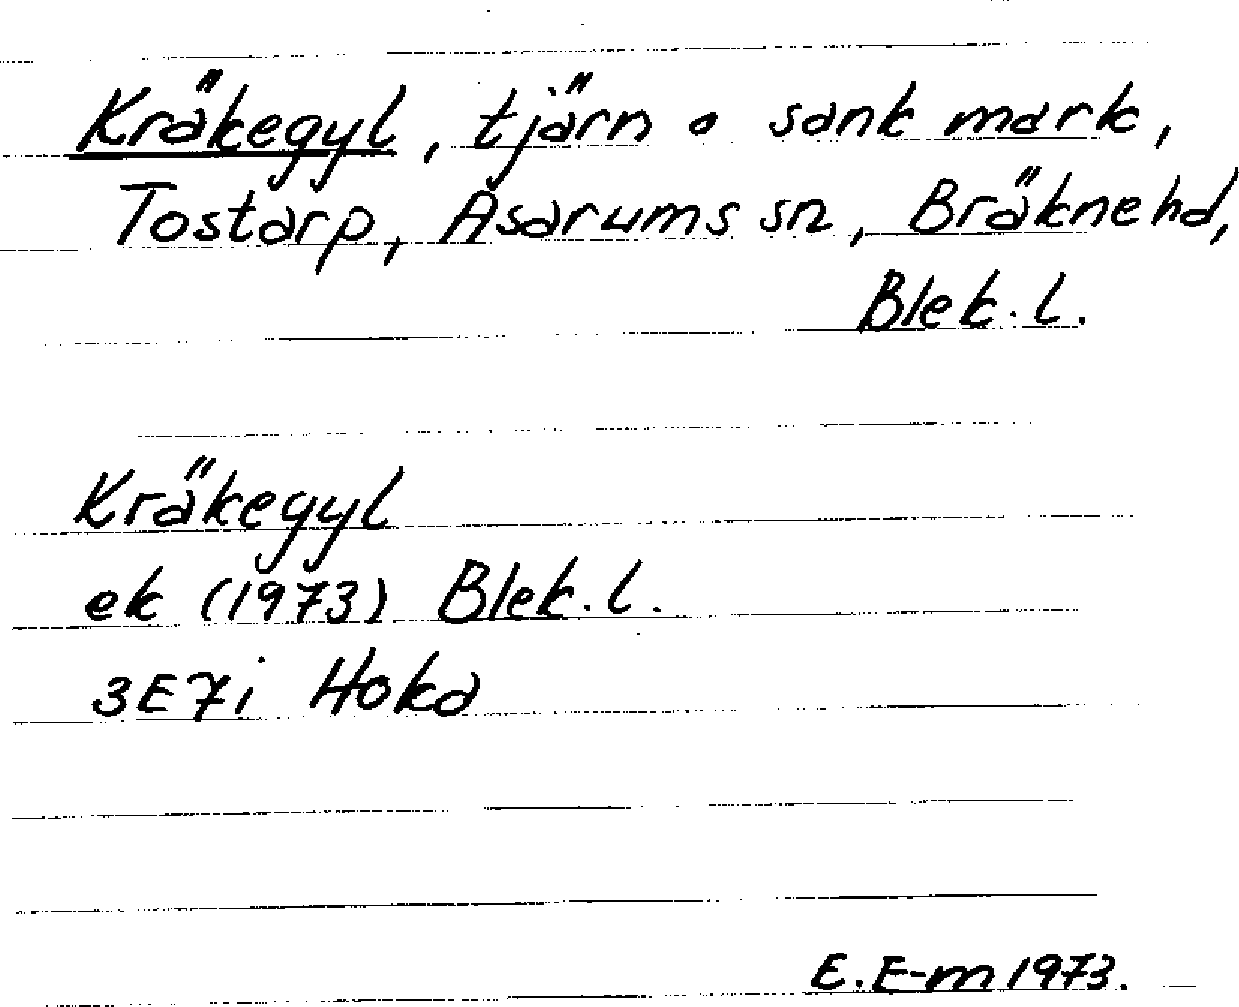 Kräkegyl, tjärn o sank mark,
Tostarp, Asarums sn, Bräknehd,
Blek. l.
Kräkegyl
ek (1973) Blek. l.
3E7i Hoka
E. E-m 1973.